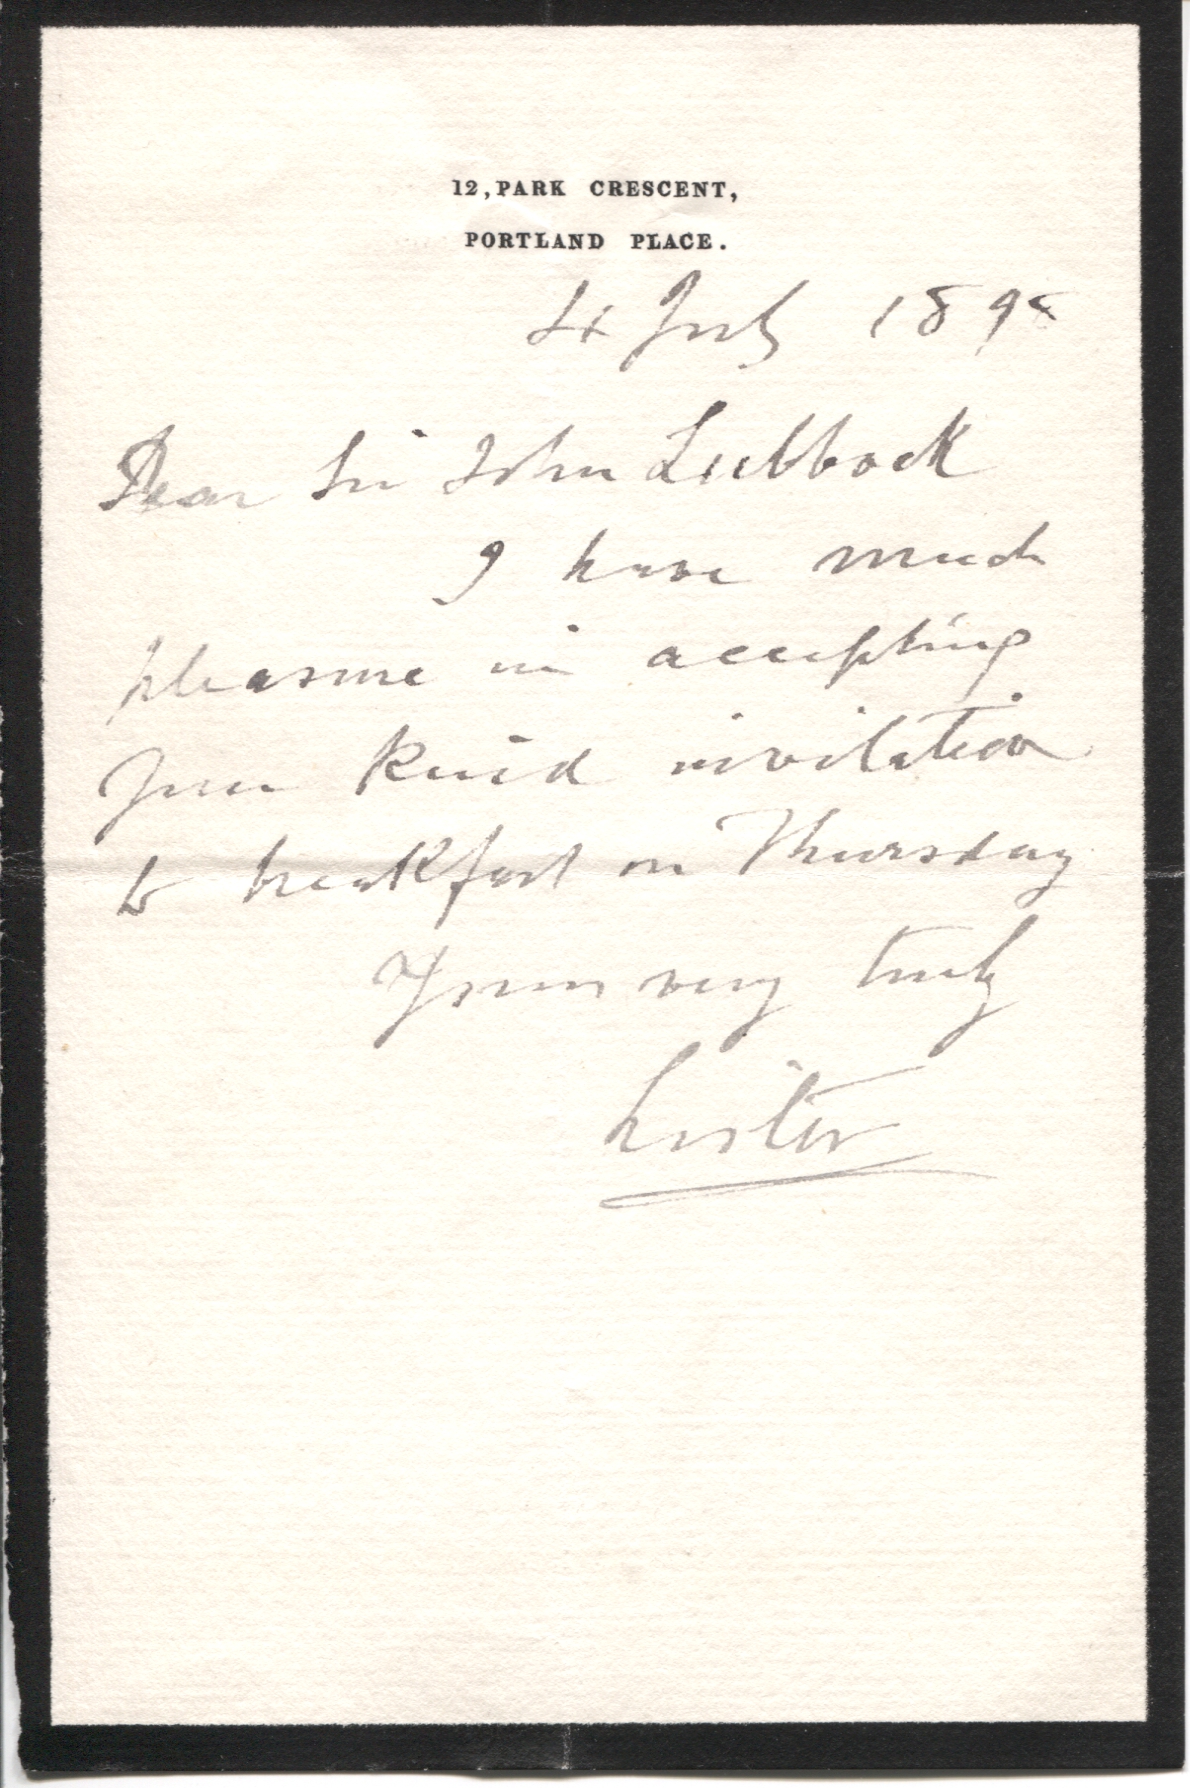 12, PARK CRESCENT,
PORTLAND PLACE.
4 July 1898
Dear Sir John Lubbock
I have much
pleasure in accepting
your kind invitation
to breakfast on Thursday
Yours very truly
Lister